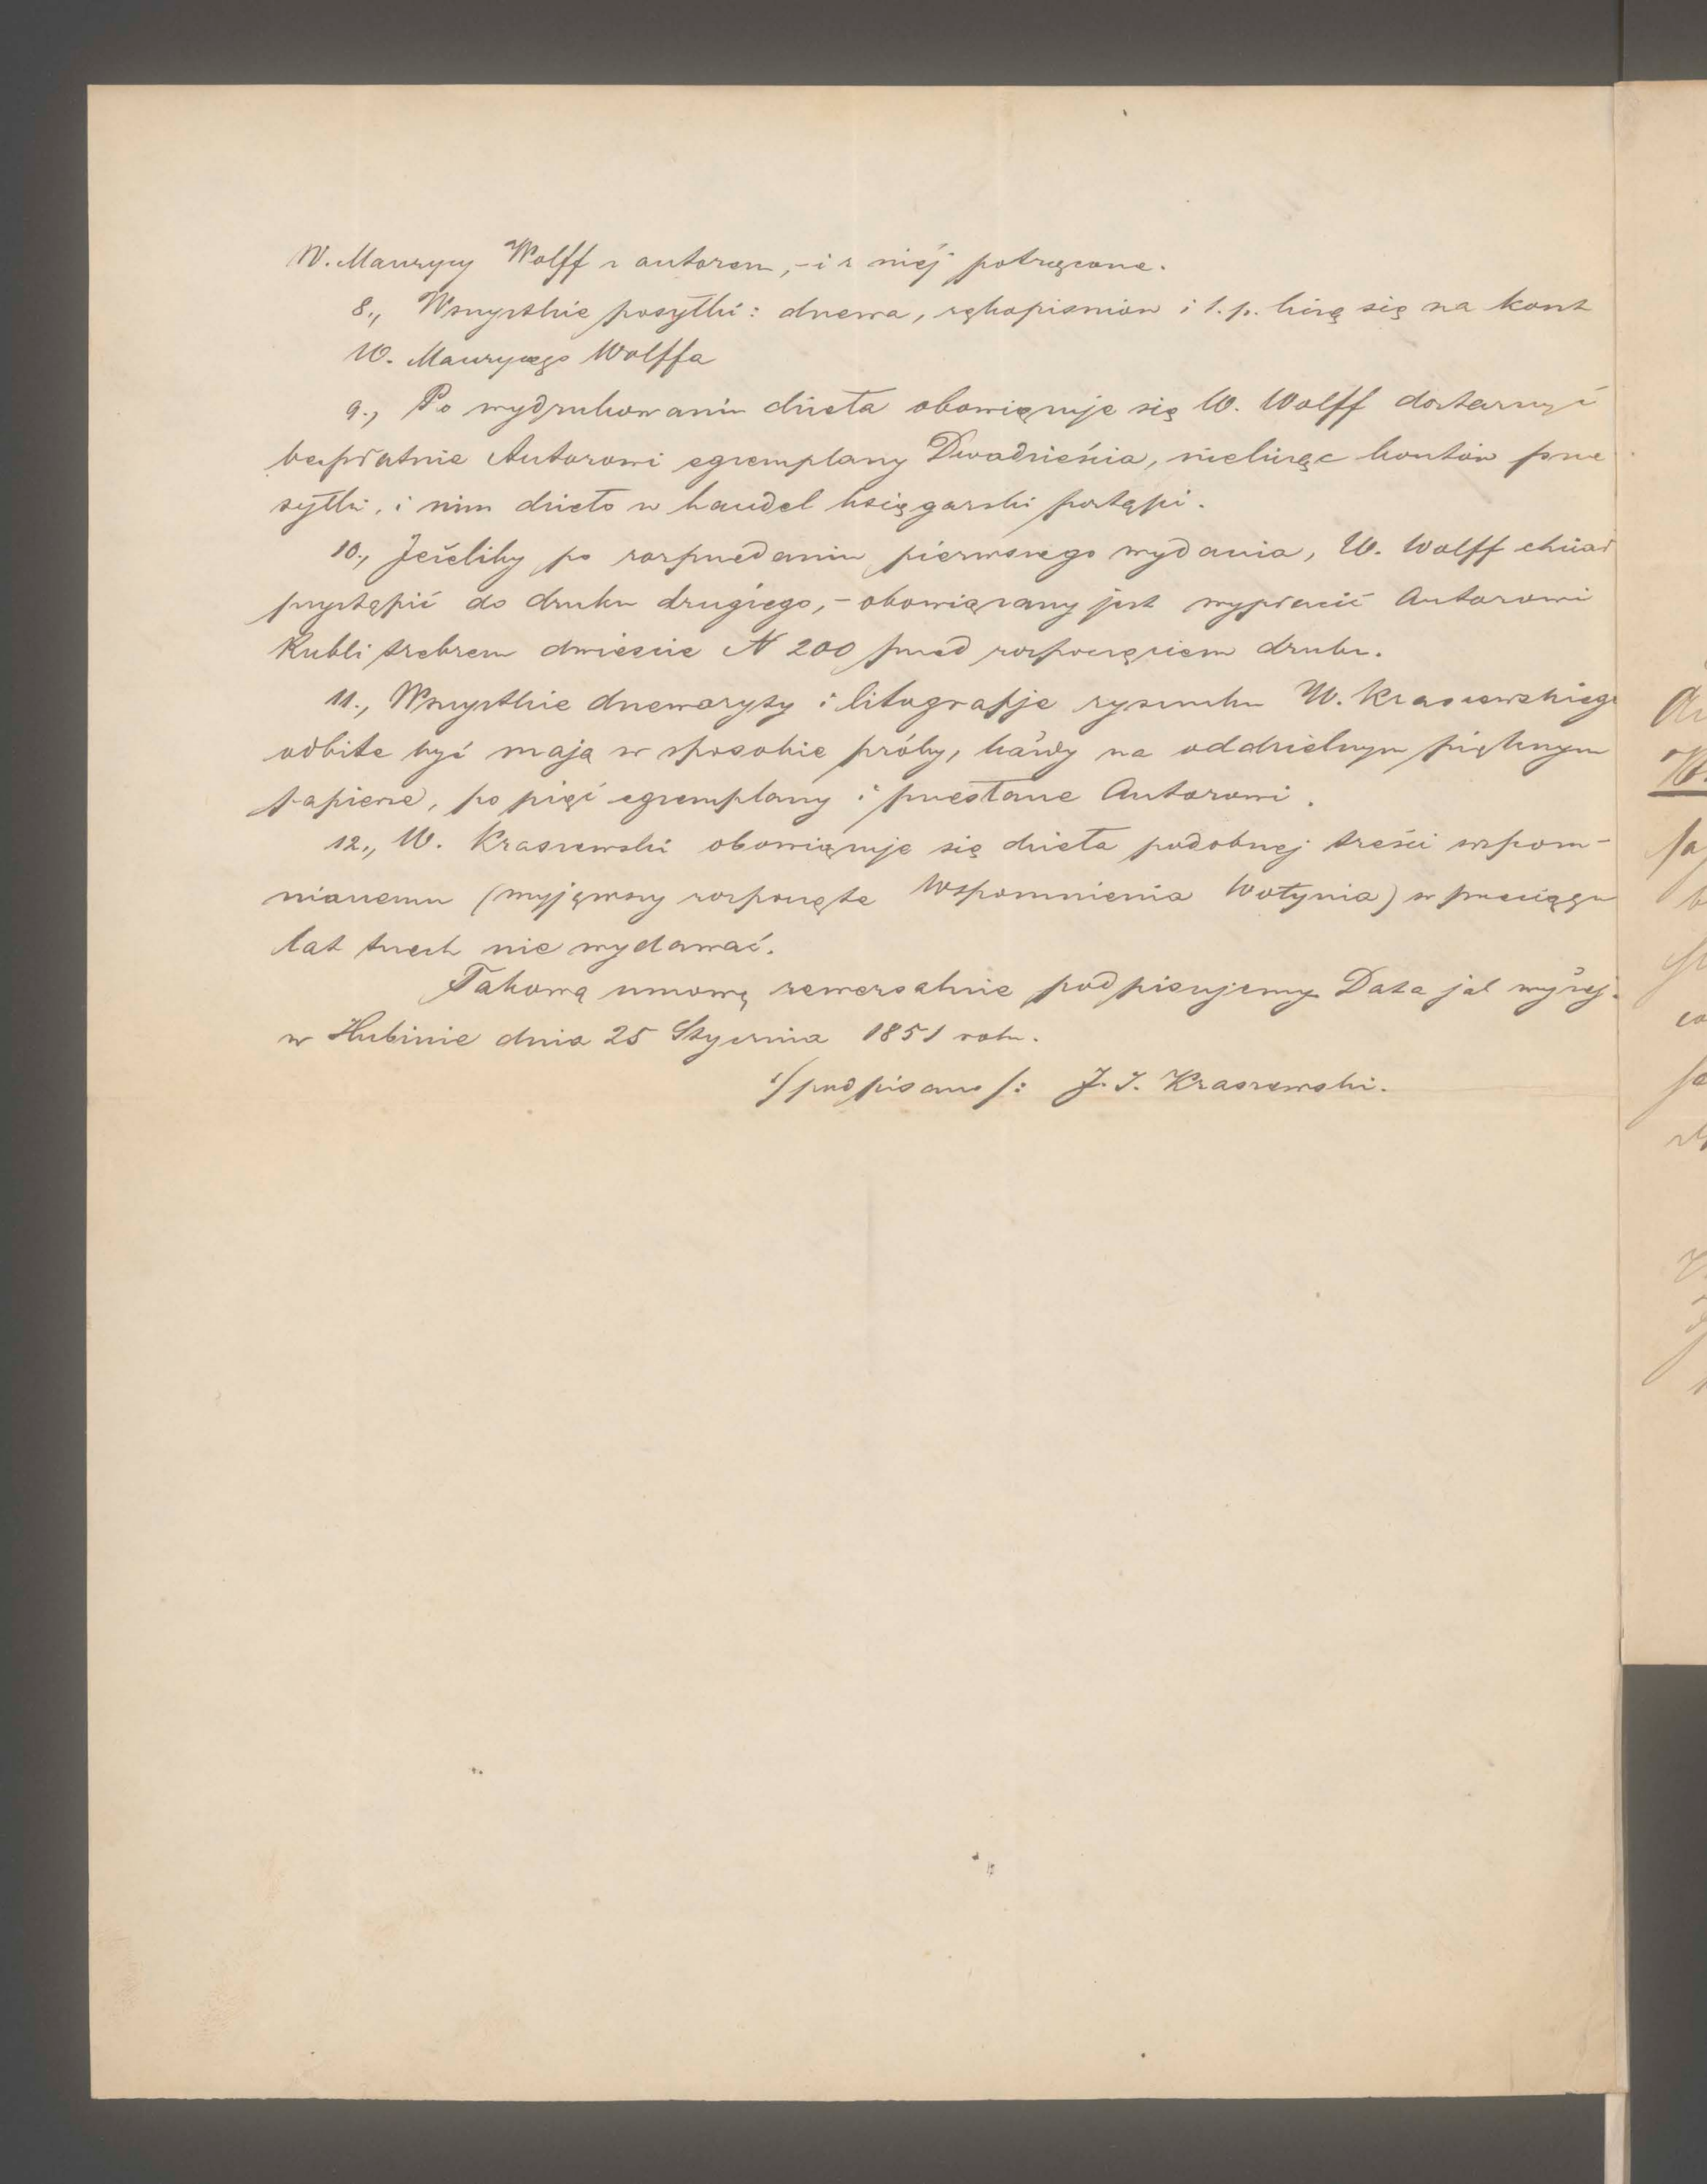 W. Maurycy Wolff z autorem, – i z niéj potrącone.
8., Wszystkie posyłki: drzewa, rękopismów i t. p. liczą się na koszt
W. Maurycego Wolffa
9., Po wydrukowaniu dzieła obowięzuje się W. Wolff dostarczyć
bezpłatnie Autorowi egzemplarzy Dwadzieścia, nielicząc kosztów prze
syłki, i nim dzieło w handel księgarski postąpi.
10., Jeżeliby po rozprzedaniu pierwszego wydania, W. Wolff chciał
przystąpić do druku drugiego, – obowiązany jest wypłacić Autorowi
Rubli srebrem dwieście N 200 przed rozpoczęciem druku.
11., Wszystkie drzeworyty i litografje rysunku W. Kraszewskiego
odbite być mają w sposobie próby, każdy na oddzielnym pięknym
papierze, po pięć egzemplarzy i przesłane Autorowi.
12., W. Kraszewski obowięzuje się dzieła podobnej treści wspom-
nianemu (wyjąwszy rozpoczęte Wspomnienia Wołynia) w przeciągu
lat trzech nie wydawać.
Takową umowę rewersalnie podpisujemy Data jak wyżej.
w Hubinie dnia 25 Stycznia 1851 roku.
:/podpisano/: J. I. Kraszewski.